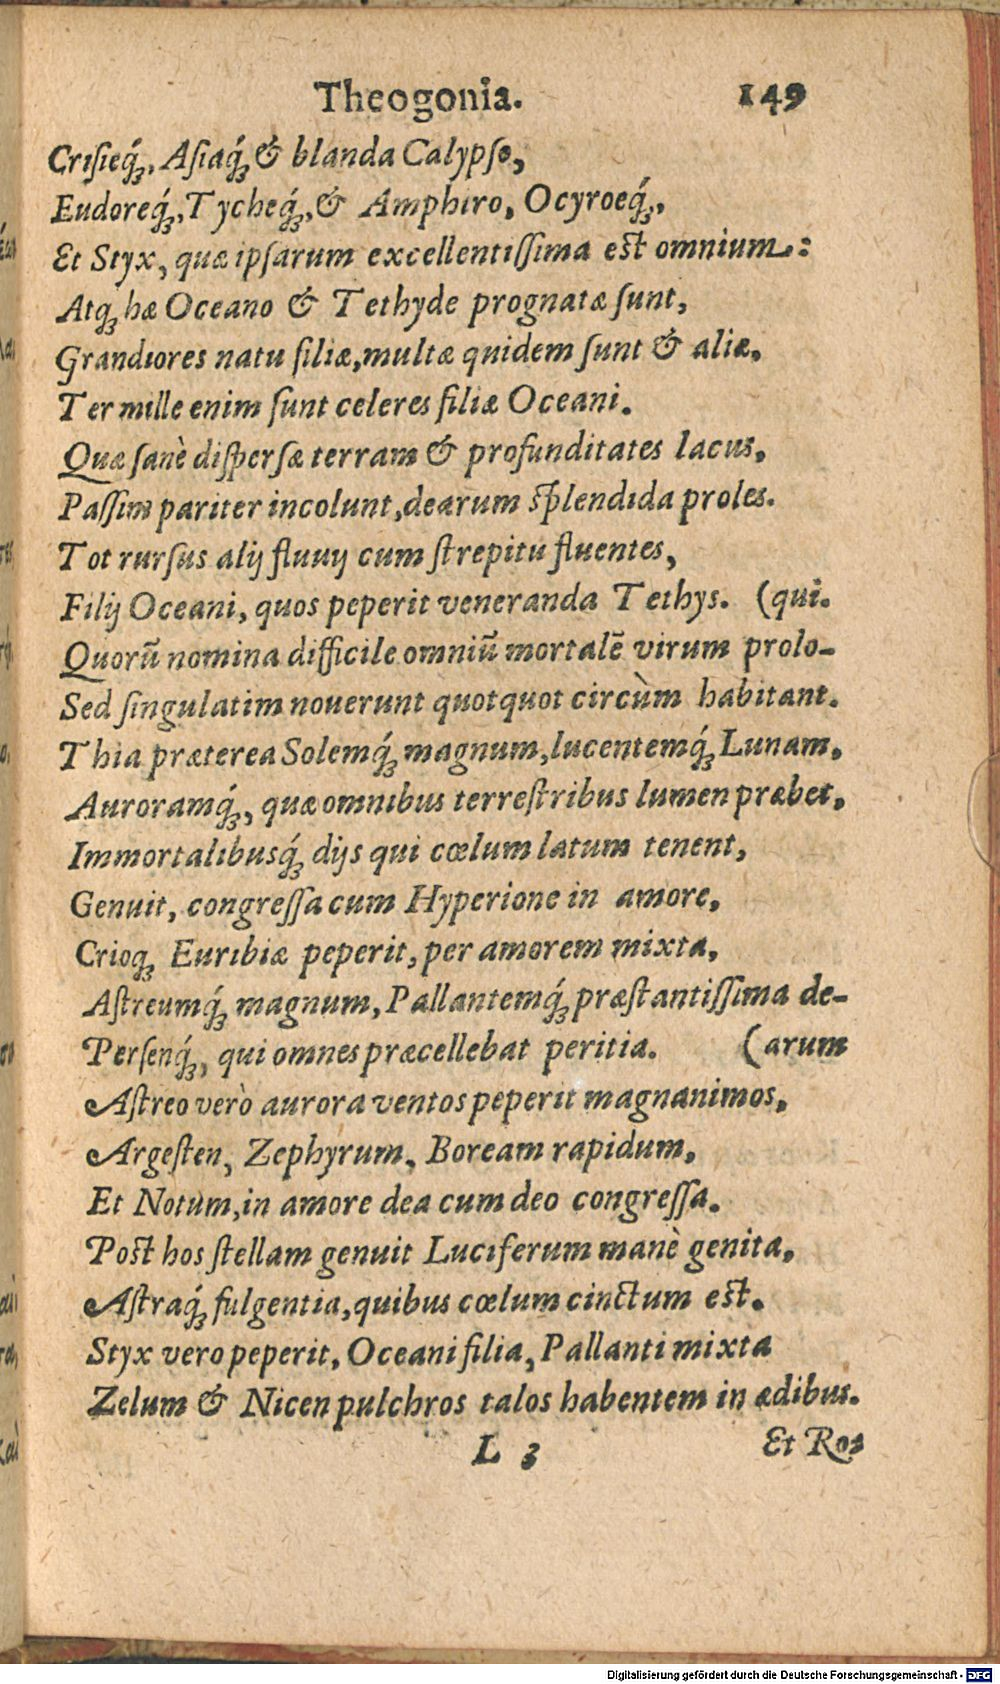 Theogonia. 149
Crisieq́ꝫ, Asiaq́ꝫ & blanda Calypso,
Eudoreq́ꝫ, Tycheq́ꝫ, & Amphiro, Ocyroeq́ꝫ,
Et Styx, quæ ipſarum excellentiſſima est omnium:
Atqꝫ hæ Oceano & Tethyde prognatæ ſunt,
Grandiores natu filiæ, multæ quidem ſunt & aliæ.
Ter mille enim ſunt celeres filiæ Oceani.
Quæ ſanè diſperſæ terram & profunditates lacus,
Paſſim pariter incolunt, dearum ſplendida proles.
Tot rurſus alij fluuij cum ſtrepitu fluentes,
Filij Oceani, quos peperit veneranda Tethys. (qui.
Quorũ nomina difficile omniũ mortalẽ virum prolo-
Sed ſingulatim nouerunt quotquot circùm habitant.
Thia præterea Solemq́ꝫ magnum, lucentemq́ꝫ Lunam,
Auroramq́ꝫ, quæ omnibus terreſtribus lumen præbet,
Immortalibusq́ꝫ dijs qui cœlum latum tenent,
Genuit, congreſſa cum Hyperione in amore,
Crioqꝫ Euribiæ peperit, per amorem mixta,
Aſtreumq́ꝫ magnum, Pallantemq́ꝫ præſtantiſſima de-
Perſenq́ꝫ, qui omnes præcellebat peritia. (arum
Aſtreo verò aurora ventos peperit magnanimos,
Argeſten, Zephyrum, Boream rapidum,
Et Notum, in amore dea cum deo congreſſa.
Poſt hos ſtellam genuit Luciferum manè genita,
Aſtraq́ꝫ fulgentia, quibus cœlum cinctum eſt.
Styx vero peperit, Oceani filia, Pallanti mixta
Zelum & Nicen pulchros talos habentem in ædibus.
L 3 Et Ro
Digitalisierung gefördert durch die Deutsche Forschungsgemeinschaft - DFG